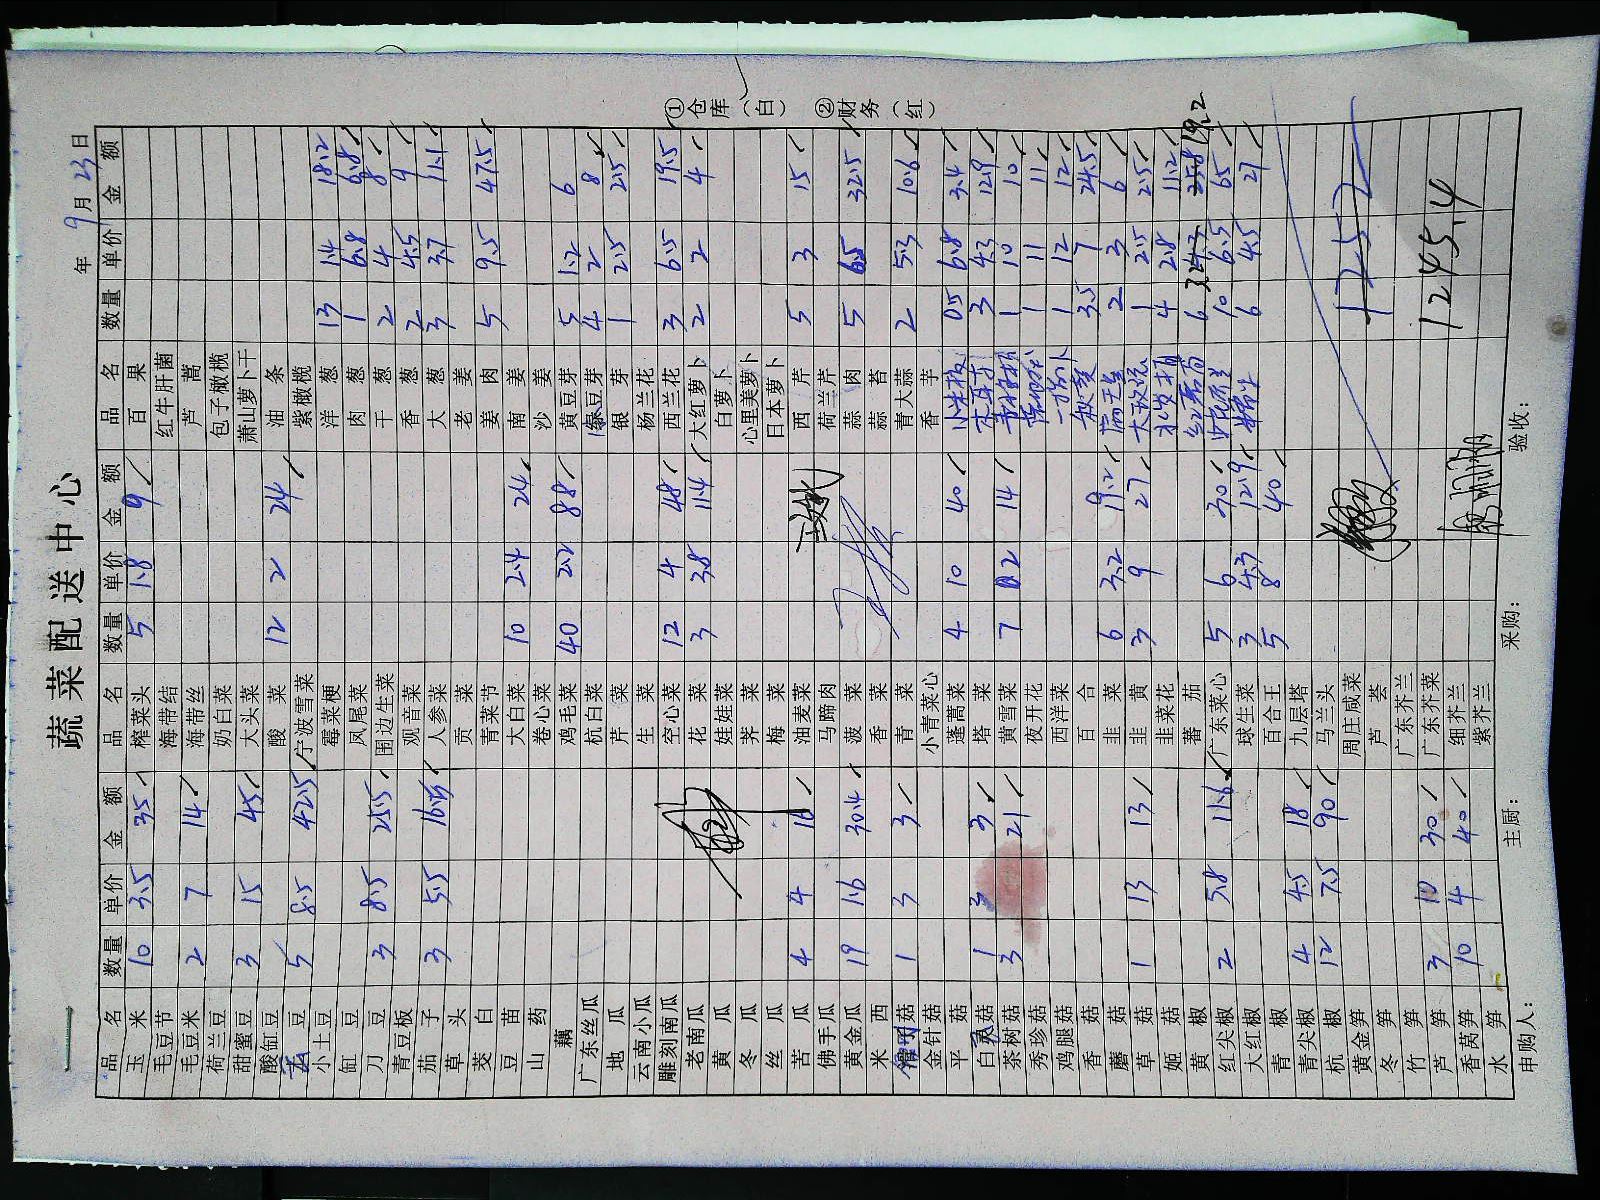 蔬菜配送中心
年 9月 23日
品名 数量 单价 金额 品名 数量 单价 金额 品名 数量 单价 金额
玉米 10 3.5 35 榨菜头 5 1.8 9 百果
毛豆节 海带结 红牛肝菌
毛豆米 2 7 14 海带丝 芦蒿
荷兰豆 奶白菜 包子橄榄
甜蜜豆 3 15 45 大头菜 萧山萝卜干
酸缸豆 酸菜 12 2 24 油条
豆 5 8.5 42.5 宁波雪菜 紫橄榄
小土豆 霉菜梗 洋葱 13 1.4 18.2
缸豆 凤尾菜 肉葱 1 6.8 6.8
刀豆 3 8.5 25.5 围边生菜 干葱 2 4 8
青豆板 观音菜 香葱 2 4.5 9
茄子 3 5.5 16.5 人参菜 大葱 3 3.7 11.1
草头 贡菜 老姜
茭白 青菜节 姜肉 5 9.5 47.5
豆苗 大白菜 10 2.4 24 南姜
山药 卷心菜 沙姜
藕 鸡毛菜 40 2.2 88 黄豆芽 5 1.2 6
广东丝瓜 杭白菜 绿豆芽 4 2 8
地瓜 芹菜 银芽 1 2.5 2.5
云南小瓜 生菜 杨兰花
雕刻南瓜 空心菜 12 4 48 西兰花 3 6.5 19.5
老南瓜 花菜 3 3.8 11.4 大红萝卜 2 2 4
黄瓜 娃娃菜 白萝卜
冬瓜 荠菜 心里美萝卜
丝瓜 梅菜 日本萝卜
苦瓜 4 4 16 油麦菜 西芹 5 3 15
佛手瓜 马蹄肉 荷兰芹
黄金瓜 19 1.6 30.4 菠菜 蒜肉 5 6.5 32.5
西米 香菜 蒜苔
菇 1 3 3 青菜 青大蒜 2 5.3 10.6
金针菇 小青菜心 香芋
平菇 蓬蒿菜 4 10 40 小米椒 0.5 6.8 3.4
白灵菇 1 3 3 塔菜 木耳菜 3 4.3 12.9
茶树菇 3 7 21 黄雪菜 7 2 14 1 10 10
秀珍菇 夜开花 1 11 11
鸡腿菇 西洋菜 1 12 12
香菇 百合 3.5 7 24.5
蘑菇 韭菜 6 3.2 19.2 2 3 6
草菇 1 13 13 韭黄 3 9 27 1 2.5 2.5
姬菇 韭菜花 4 2.8 11.2
黄椒 蕃茄 6 25.8 19.2
红尖椒 2 5.8 11.6 广东菜心 5 6 30 10 6.5 65
大红椒 球生菜 3 4.3 12.9 6 4.5 27
青椒 百合王 5 8 40
青尖椒 4 4.5 18 九层塔
杭椒 12 7.5 90 马兰头
黄金笋 周庄咸菜 1252
冬笋 芦荟
竹笋 广东芥兰
芦笋 3 10 30 广东芥菜 1245.4
香莴笋 10 4 40 细芥兰
水笋 紫芥兰
申购人： 主厨： 采购： 验收：
①仓库（白） ②财务（红）